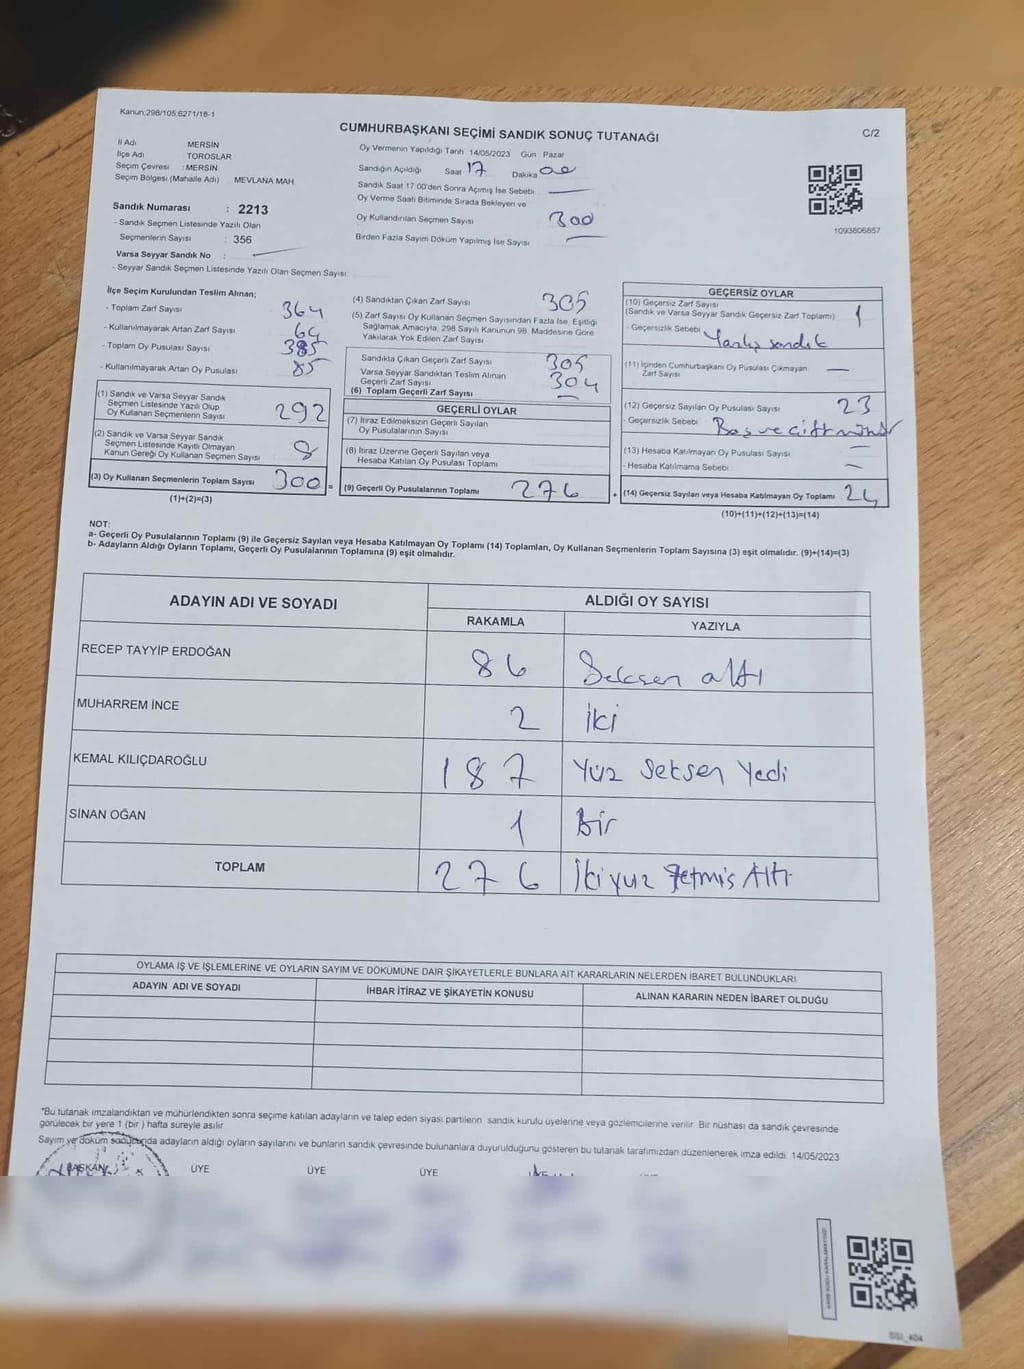 Kanun:298/105,6271/18-1
CUMHURBAŞKANI SEÇİMİ SANDIK SONUÇ TUTANAĞI
C/2
İl Adı MERSİN
İlçe Adı TOROSLAR
Seçim Çevresi : MERSİN
Seçim Bölgesi (Mahalle Adı) MEVLANA MAH.
Sandık Numarası : 2213
- Sandık Seçmen Listesinde Yazılı Olan
Seçmenlerin Sayısı : 356
Varsa Seyyar Sandık No :
- Seyyar Sandık Seçmen Listesinde Yazılı Olan Seçmen Sayısı:
Oy Vermenin Yapıldığı Tarih 14/05/2023 Gün Pazar
Sandığın Açıldığı Saat 17 Dakika 00
Sandık Saat 17:00'den Sonra Açımış İse Sebebi
Oy Verme Saati Bitiminde Sırada Bekleyen ve
Oy Kullandırılan Seçmen Sayısı 300
Birden Fazla Sayım Döküm Yapılmış İse Sayısı
1093806857
İlçe Seçim Kurulundan Teslim Alınan;
- Toplam Zarf Sayısı 364
- Kullanılmayarak Artan Zarf Sayısı 64
- Toplam Oy Pusulası Sayısı 385
- Kullanılmayarak Artan Oy Pusulası 85
(1) Sandık ve Varsa Seyyar Sandık
Seçmen Listesinde Yazılı Olup
Oy Kullanan Seçmenlerin Sayısı 292
(2) Sandık ve Varsa Seyyar Sandık
Seçmen Listesinde Kayıtlı Olmayan
Kanun Gereği Oy Kullanan Seçmen Sayısı 8
(3) Oy Kullanan Seçmenlerin Toplam Sayısı 300 =
(1)+(2)=(3)
(4) Sandıktan Çıkan Zarf Sayısı 305
(5) Zarf Sayısı Oy Kullanan Seçmen Sayısından Fazla İse, Eşitliği
Sağlamak Amacıyla, 298 Sayılı Kanunun 98. Maddesine Göre
Yakılarak Yok Edilen Zarf Sayısı
Sandıkta Çıkan Geçerli Zarf Sayısı 305
Varsa Seyyar Sandıktan Teslim Alınan
Geçerli Zarf Sayısı 304
(6) Toplam Geçerli Zarf Sayısı
GEÇERLİ OYLAR
(7) İtiraz Edilmeksizin Geçerli Sayılan
Oy Pusulalarının Sayısı
(8) İtiraz Üzerine Geçerli Sayılan veya
Hesaba Katılan Oy Pusulası Toplamı
(9) Geçerli Oy Pusulalarının Toplamı 276 +
GEÇERSİZ OYLAR
(10) Geçersiz Zarf Sayısı
(Sandık ve Varsa Seyyar Sandık Geçersiz Zarf Toplamı) 1
- Geçersizlik Sebebi Yanlış sandık
(11) İçinden Cumhurbaşkanı Oy Pusulası Çıkmayan
Zarf Sayısı
(12) Geçersiz Sayılan Oy Pusulası Sayısı 23
- Geçersizlik Sebebi Boş ve çift mühür
(13) Hesaba Katılmayan Oy Pusulası Sayısı
- Hesaba Katılmama Sebebi
(14) Geçersiz Sayılan veya Hesaba Katılmayan Oy Toplamı 24
(10)+(11)+(12)+(13)=(14)
NOT:
a- Geçerli Oy Pusulalarının Toplamı (9) ile Geçersiz Sayılan veya Hesaba Katılmayan Oy Toplamı (14) Toplamları, Oy Kullanan Seçmenlerin Toplam Sayısına (3) eşit olmalıdır. (9)+(14)=(3)
b- Adayların Aldığı Oyların Toplamı, Geçerli Oy Pusulalarının Toplamına (9) eşit olmalıdır.
ADAYIN ADI VE SOYADI ALDIĞI OY SAYISI
RAKAMLA YAZIYLA
RECEP TAYYİP ERDOĞAN 86 Seksen altı
MUHARREM İNCE 2 İki
KEMAL KILIÇDAROĞLU 187 Yüz seksen yedi
SİNAN OĞAN 1 Bir
TOPLAM 276 İkiyüz Yetmiş Altı
OYLAMA İŞ VE İŞLEMLERİNE VE OYLARIN SAYIM VE DÖKÜMÜNE DAİR ŞİKAYETLERLE BUNLARA AİT KARARLARIN NELERDEN İBARET BULUNDUKLARI
ADAYIN ADI VE SOYADI İHBAR İTİRAZ VE ŞİKAYETİN KONUSU ALINAN KARARIN NEDEN İBARET OLDUĞU
*Bu tutanak imzalandıktan ve mühürlendikten sonra seçime katılan adayların ve talep eden siyasi partilerin sandık kurulu üyelerine veya gözlemcilerine verilir. Bir nüshası da sandık çevresinde
görülecek bir yere 1 (bir) hafta süreyle asılır.
Sayım ve döküm sonucunda adayların aldığı oyların sayılarını ve bunların sandık çevresinde bulunanlara duyurulduğunu gösteren bu tutanak tarafımızdan düzenlenerek imza edildi. 14/05/2023
BAŞKAN ÜYE ÜYE ÜYE